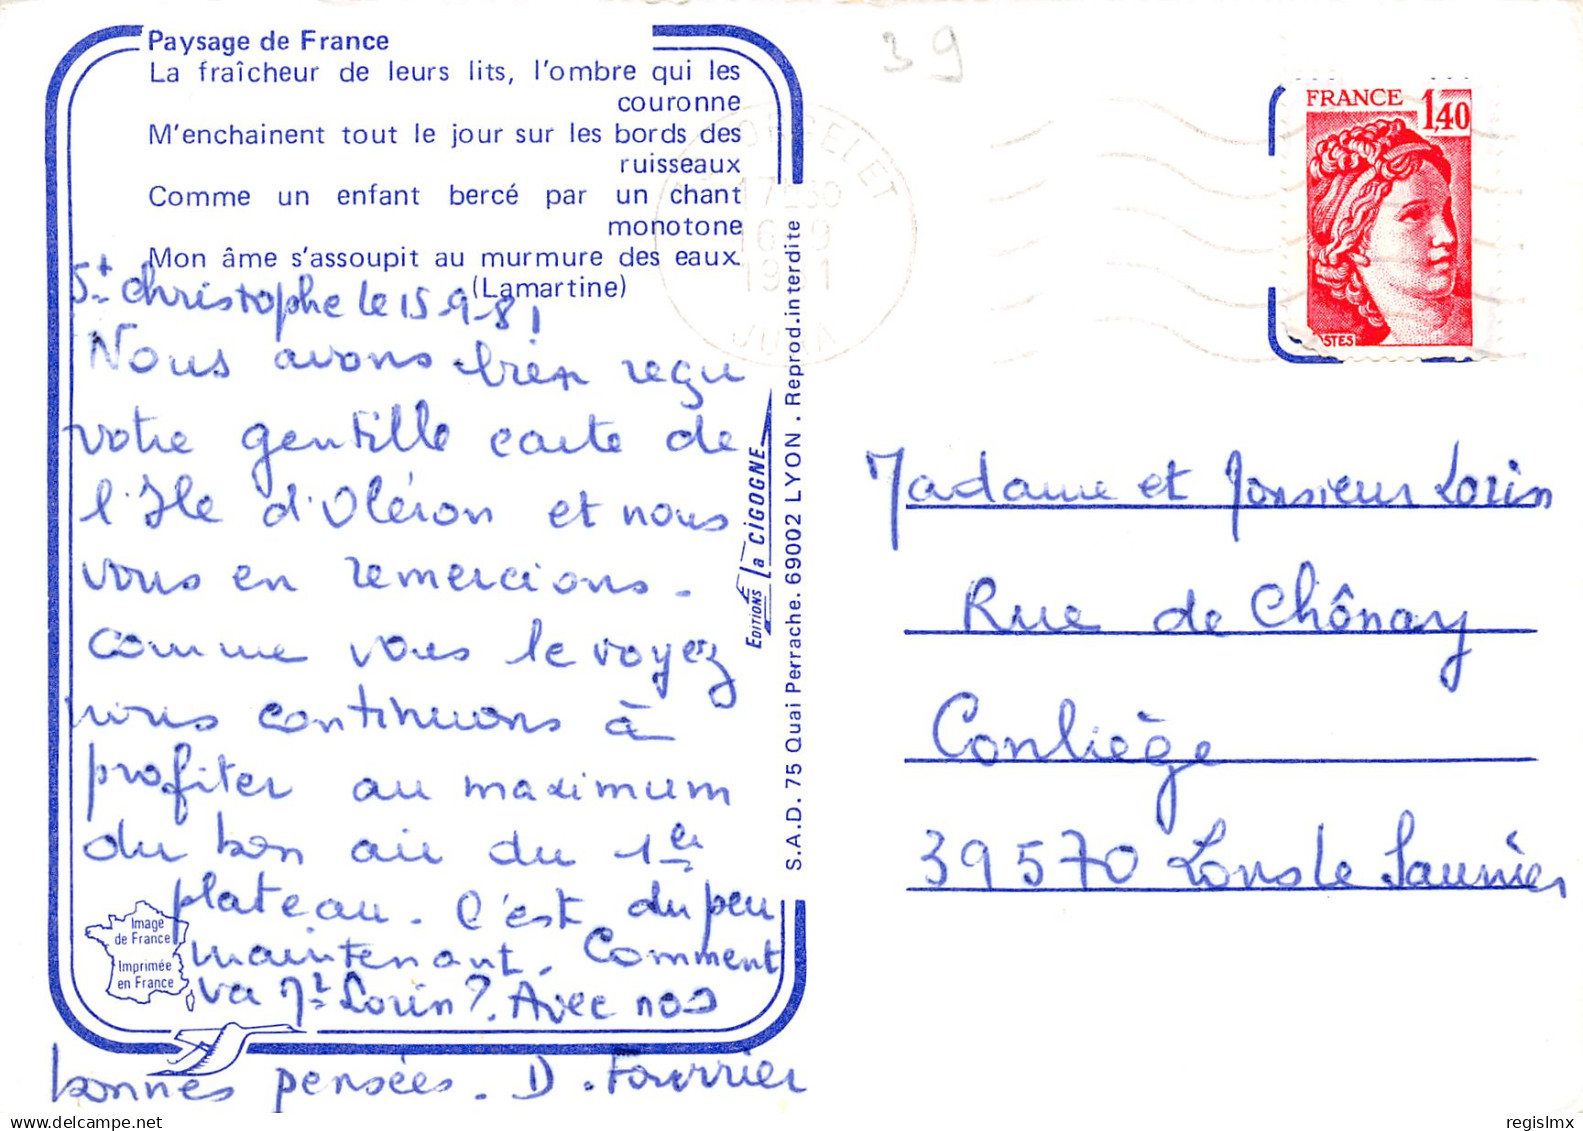 Paysage de France
La fraîcheur de leurs lits, l'ombre qui les
couronne
M'enchainent tout le jour sur les bords des
ruisseaux
Comme un enfant bercé par un chant
monotone
Mon âme s'assoupit au murmure des eaux.
(Lamartine)
St Christophe le 15-9-81
Nous avons bien reçu
votre gentille carte de
l'Ile d'Oléron et nous
vous en remercions.
Comme vous le voyez
nous continuons à
profiter au maximum
du bon air du 1er
plateau. C'est du peu
maintenant. Comment
va Mr Lorin? Avec nos
bonnes pensées. D. Fourrier
Image
de France
Imprimée
en France
EDITIONS La CIGOGNE
S.A.D. 75 Quai Perrache. 69002 LYON . Reprod. interdite
39
ORGELET
1981
JURA
FRANCE 1,40
STES
Madame et Monsieur Lorin
Rue de Chônay
Conliège
39570 Lons le Saunier
regislmx